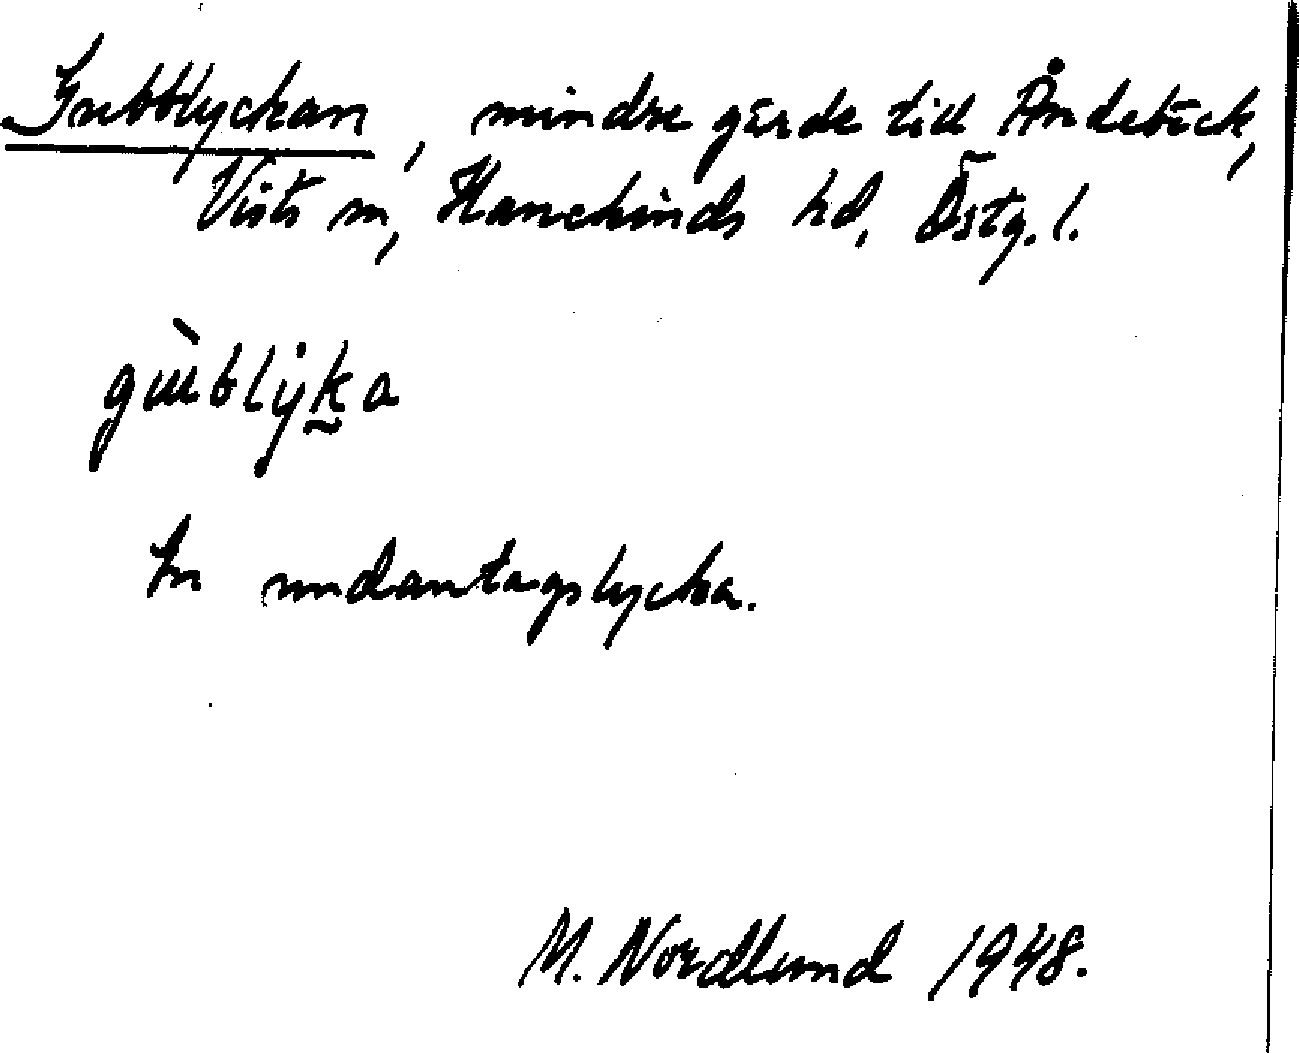 Gubblyckan, mindre gärde till Åndebäck,
Vists sn, Hanekinds hd, Östg. l.
gùblyka
En undantagslycka.
M. Nordlund 1948.